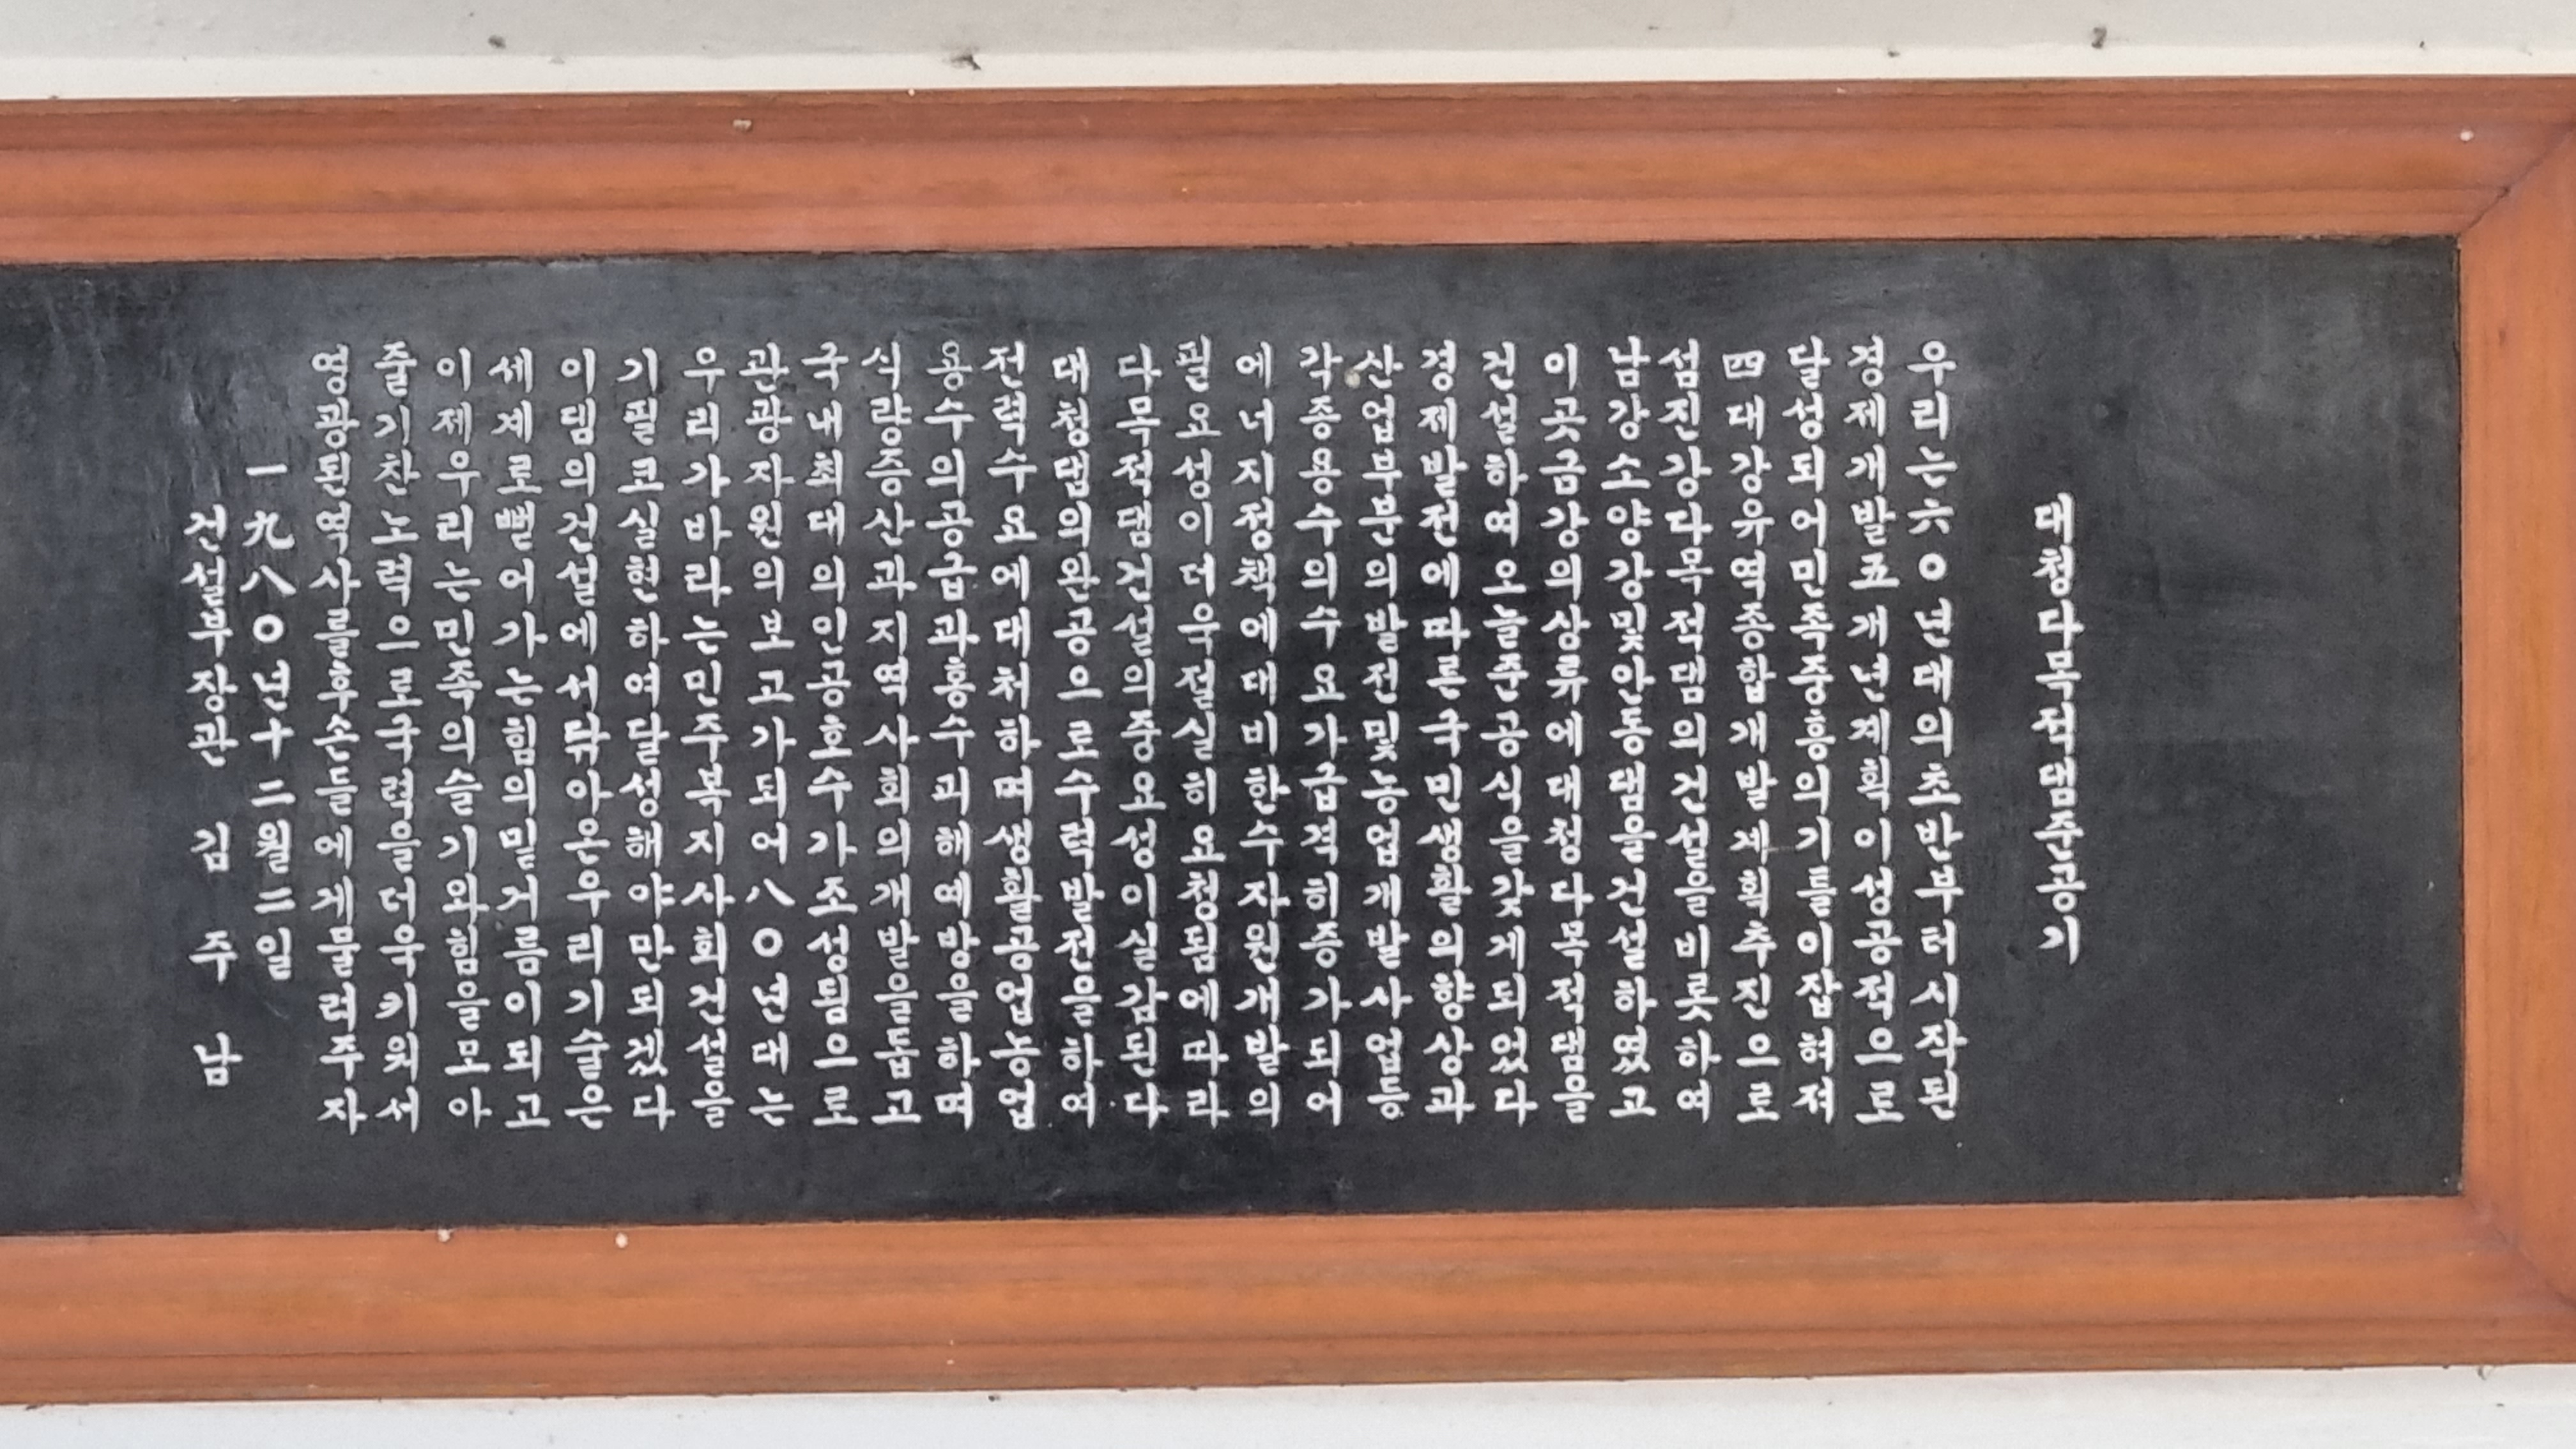 대청다목적댐준공기
우리는六〇년대의초반부터시작된
경제개발五개년계획이성공적으로
달성되어민족중흥의기틀이잡혀져
四대강유역종합개발계획추진으로
섬진강다목적댐의건설을비롯하여
남강소양강및안동댐을건설하였고
이곳금강의상류에대청다목적댐을
건설하여오늘준공식을갖게되었다
경제발전에따른국민생활의향상과
산업부분의발전및농업개발사업등
각종용수의수요가급격히증가되어
에너지정책에대비한수자원개발의
필요성이더욱절실히요청됨에따라
다목적댐건설의중요성이실감된다
대청댐의완공으로수력발전을하여
전력수요에대처하며생활공업농업
용수의공급과홍수피해예방을하며
식량증산과지역사회의개발을돕고
국내최대의인공호수가조성됨으로
관광자원의보고가되어八〇년대는
우리가바라는민주복지사회건설을
기필코실현하여달성해야만되겠다
이댐의건설에서닦아온우리기술은
세계로뻗어가는힘의밑거름이되고
이제우리는민족의슬기와힘을모아
줄기찬노력으로국력을더욱키워서
영광된역사를후손들에게물려주자
一九八〇년十二월二일
건설부장관 김 주 남